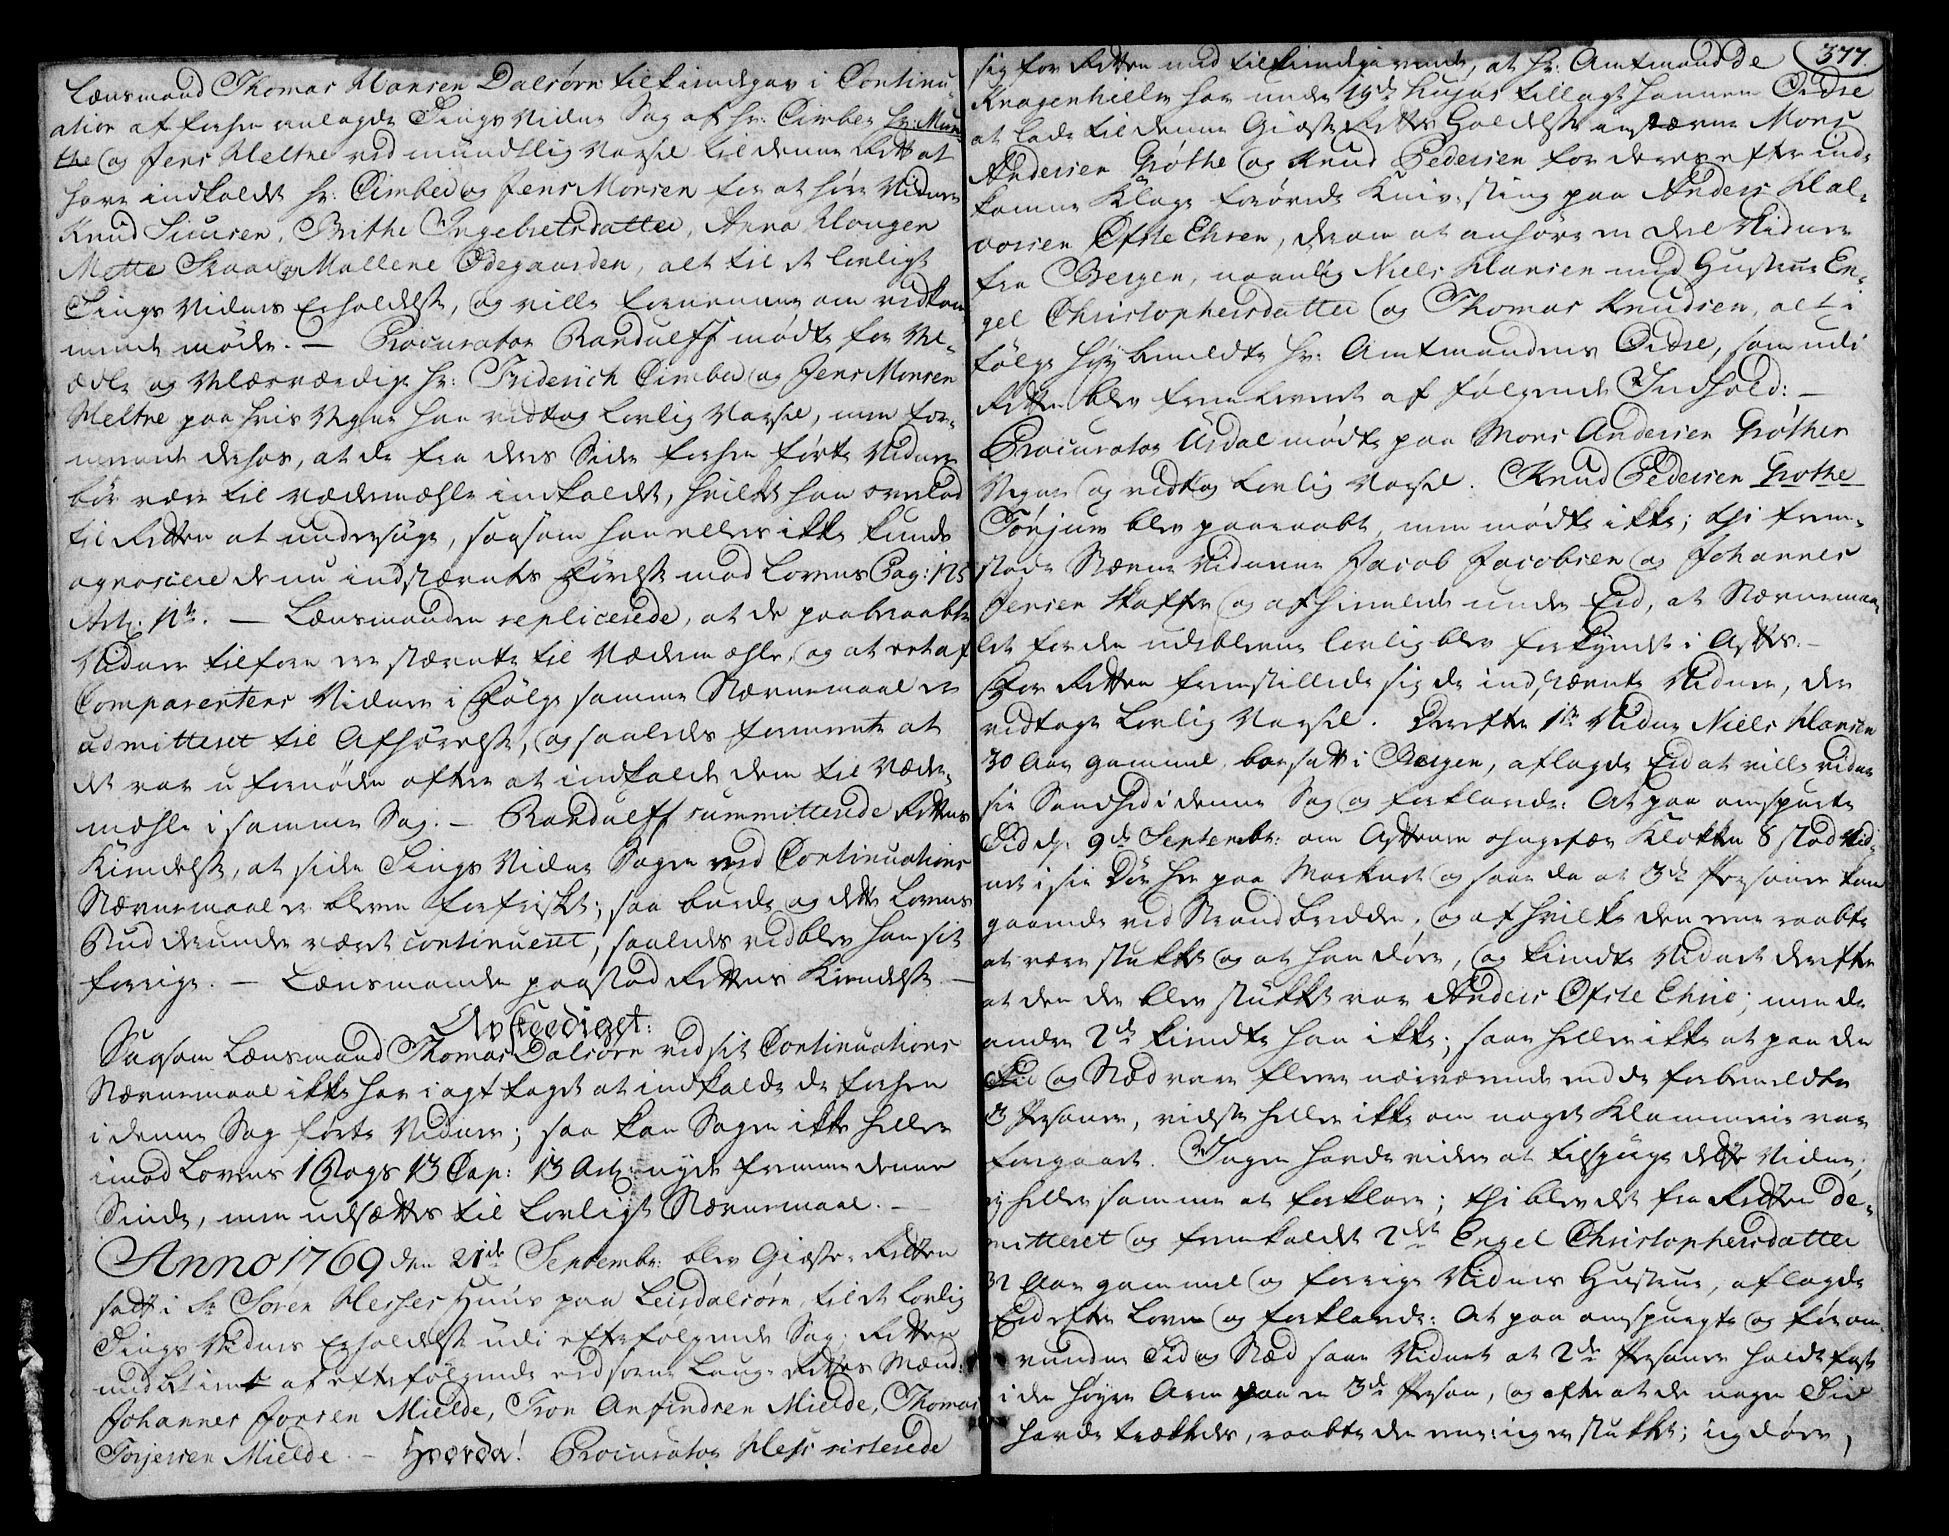 Lænsmand Thomas Hansen Dalsørn tilkiendegav i Continu-
ation af forhen anlagde Tings Vidne Sag af Hr: Cimber Hr: Mun-
the og Jens Heltne ved mundtlig Varsel til denne Rett at
have indkaldet Hr: Cimber og Jens Monsen for at høre Vidner
Knud Siursen, Brithe Ingebretsdatter, Anna Hougen
Mette Skaar og Mallene Ødegaarden, alt til et lovligt
Tings Vidnes Erholdelse, og ville fornemme om vedkom-
mende møder. — Procurator Randulff mødte for Vel-
ædle og Velærværdige Hr: Friderich Cimber og Jens Monsen
Heltne paa hvis Vegne han vedtog lovlig Varsel, men for-
meente derhos, at de fra deres Side forhen førte Vidner
bør være til Vedermæhle indkaldet, hvilket han overlod
til Retten at undersøge, saasom han ellers ikke kunde
agnoscere de nu indstævntes Førelse mod Lovens Pag: 125
Art: 11te. — Lænsmanden replicerede, at de paaberaabte
Vidner tilforn er stævnte til Vedermæhle, og at et af
Comparentens Vidner i Følge samme Stævnemaal er
admitteret til Afhørelse, og saaledes formeente at
det var ufornøden efter at indkalde dem til Veder-
mæhle i samme Sag. — Randulff summitterede Rettens
Kiendelse, at siden Tings Vidne Sagen ved Continuations
Stævnemaal er bleven forfrisket; saa burde og dette Lovens
Bud derunder været continueret, saaledes vedblev han sit
forrige. — Lænsmanden paastod Rettens Kiendelse. —
Avskeediget:
Saasom Lænsmand Thomas Dalsørn ved sit Continuations
Stævnemaal ikke har iagttaget at indkalde de forhen
i denne Sag førte Vidner; saa kan Sagen ikke heller
imod Lovens 1 Bogs 13 Cap: 13 Art: nyde fremme denne
Sinde, men udsættes til lovligt Stævnemaal. —
Anno 1769 den 21de Septembr: blev Giæste-Retten
sadt i Sr Søren Hesses Huus paa Leirdalsørn, til et lovlig
Tings Vidnes Erholdelse udi efterfølgende Sag; Retten
med betient af efterfølgende eedsorne Laug-Rettes Mænd:
Johannes Jonsen Mielde, Tron Anfindsen Mielde, Thomas
Torjersen Mielde. — Hvorda! Procurator Hess sisterede
377.
sig for Retten med tilkiendegivende, at Hr: Amtmand de
Knagenhielm har under 19de hujus tillagt hannem Ordre
at lade til denne Giæste Rettes Holdelse indstævne Mons
Andersen Grøthe og Knud Pedersen for deres efter ind-
komne Klage forøvede Knivstiing paa Anders Hal-
vorsen Øfste Ehren, derom at anhøre en deel Vidner
fra Bergen, navnlig Niels Hansen med Hustrue En-
gel Christophersdatter og Thomas Knudsen, alt i
følge høybemeldte Hr: Amtmandens Ordre, som udi
Retten blev fremleveret af følgende Indhold: —
Procurator Urdal mødte paa Mons Andersen Grøthes
Vegne og vedtog lovlig Varsel. Knud Pedersen Grothe
Tønjum blev paaraabt, men mødte ikke; thi frem-
stode Stævne Vidnerne Jacob Jacobsen og Johannes
Jensen Skaffer og afhiemlede under Eed, at Stævnemaa-
let for den udeblevne lovlig blev forkyndet i Aftes. —
For Retten fremstillede sig de indstævnte Vidner, der
vedtoge lovlig Varsel. Derefter 1te Vidne Niels Hansen
30 Aar gammel, boesadt i Bergen, aflagde Eed at ville vidne
sin Sandhed i denne Sag og forklarede: At paa omspurte
Tid d: 9de Septembr: om Aftenen ohngefær Klokken 8 stod Vid-
net i sin Dør her paa Marknet og saae da at 3de Personer kom
gaaende ved Strandbredden, og af hvilke den eene raabte
at være stukket og at han døer, og kiendte Vidnet derefter
at den der blev stukket var Anders Øfste Ehre; men de
andre 2de kiendte han ikke; saae heller ikke at paa den
Tid og Sted vare fleere nærværende end de forbemeldte
3 Personer, vidste heller ikke om noget Klammerie var
foregaaet. Ingen havde videre at tilspørge dette Vidne,
ej heller samme at forklare; thi blev det fra Retten de-
mitteret og fremkaldet 2det Engel Christophersdatter
32 Aar gammel og forrige Vidnes Hustrue, aflagde
Eed efter Loven og forklarede: At paa omspurgte og før om-
vundne Tid og Sted saae Vidnet at 2de Personer holdt fast
i den høyre Arm paa en 3de Person, og efter at de nogen Tid
havde trækkedes, raabte den eene: jeg er stukket; jeg døer,